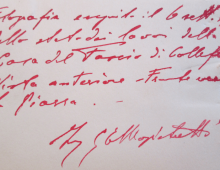 fotografia eseguita il 6 sett
dello stato dei lavori della
Casa del Fascio di Colle
Vista anteriore - Fronte
Piazza.
Ing